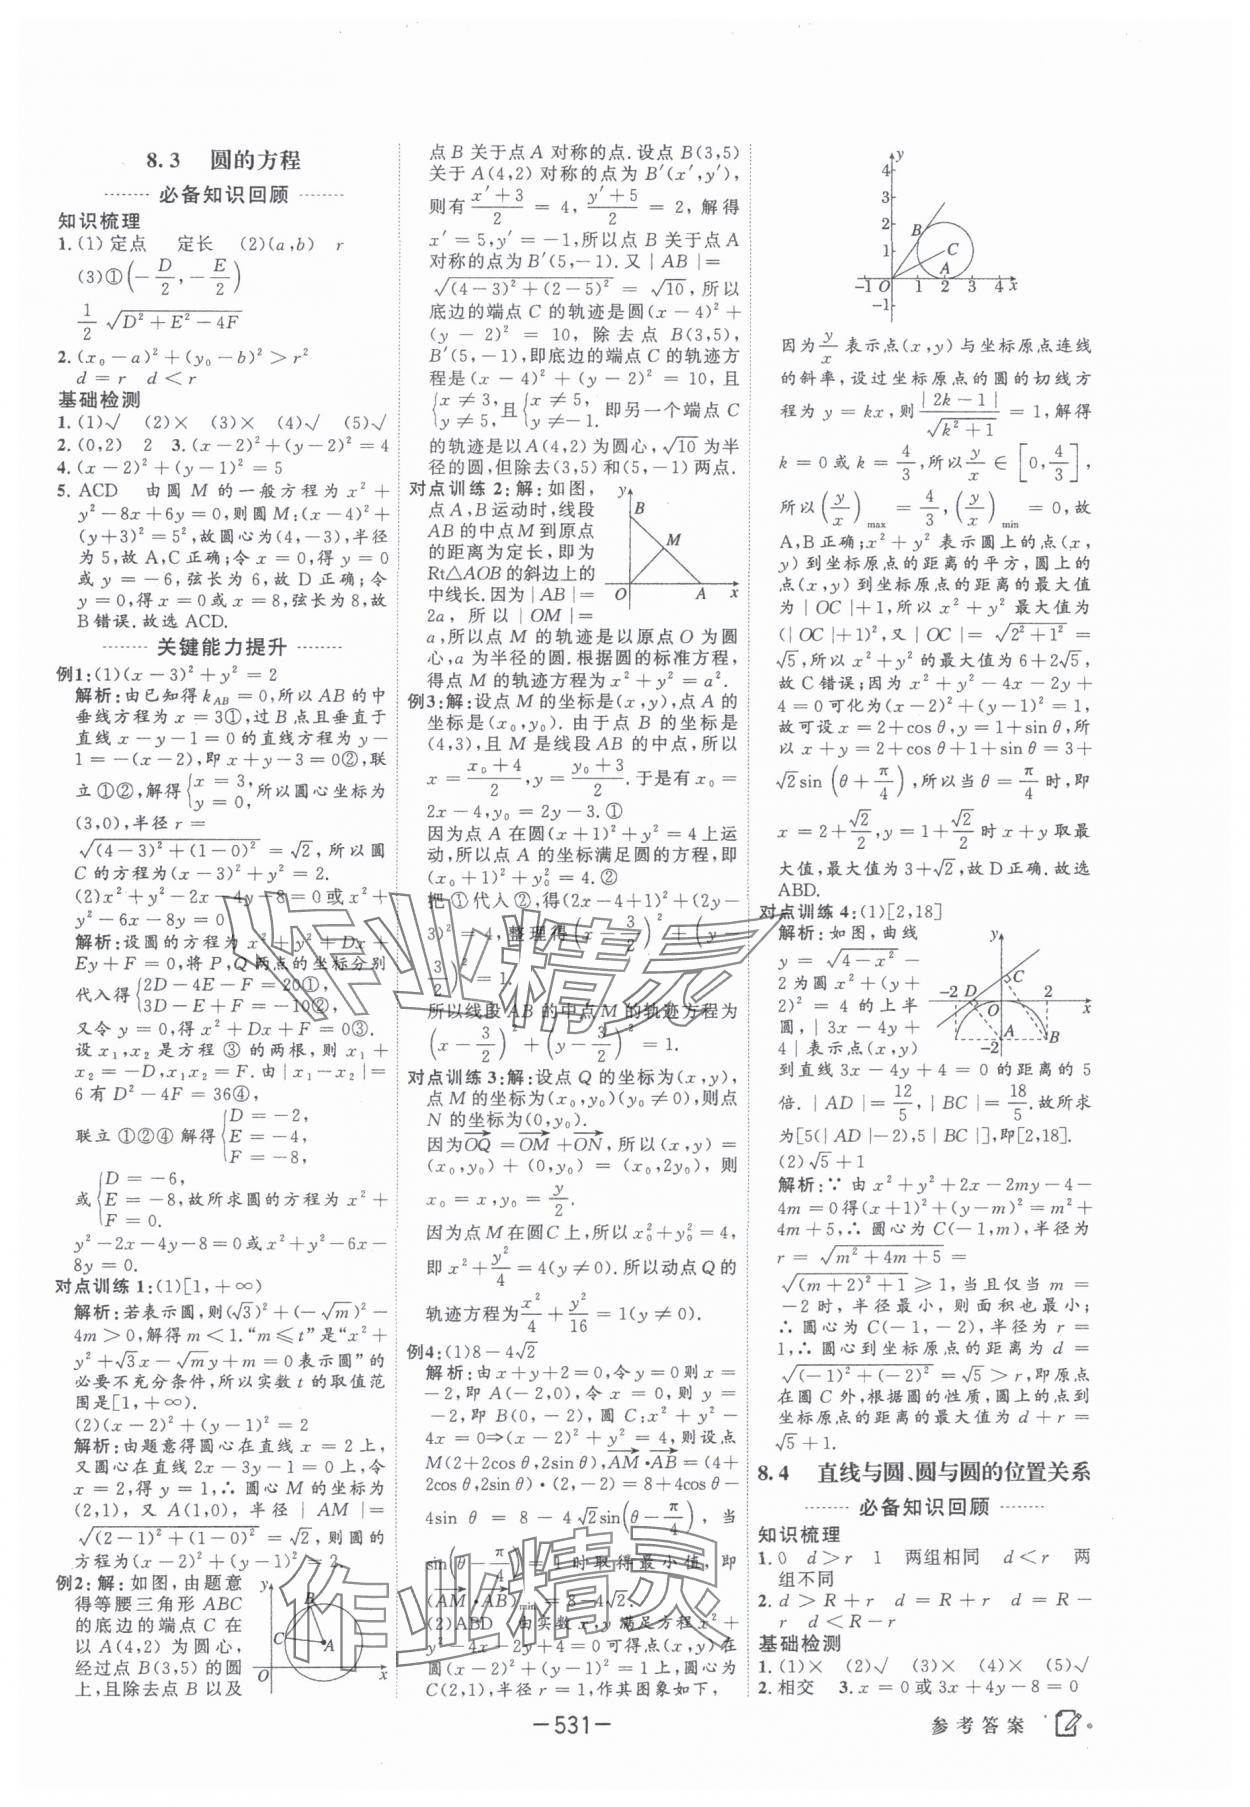 8.3 圆的方程
必备知识回顾
知识梳理
1.(1)定点 定长 (2)(a,b) r
(3)①(-D/2,-E/2)
1/2 √(D²+E²-4F)
2.(x₀-a)²+(y₀-b)²>r²
d=r d<r
基础检测
1.(1)√ (2)× (3)× (4)√ (5)√
2.(0,2) 2 3.(x-2)²+(y-2)²=4
4.(x-2)²+(y-1)²=5
5. ACD 由圆 M 的一般方程为 x²+
y²-8x+6y=0,则圆 M:(x-4)²+
(y+3)²=5²,故圆心为(4,-3),半径
为5,故 A,C 正确;令 x=0,得 y=0
或 y=-6,弦长为 6,故 D 正确;令
y=0,得 x=0或 x=8,弦长为8,故
B错误.故选ACD.
关键能力提升
例1:(1)(x-3)²+y²=2
解析:由已知得 k_AB=0,所以 AB 的中
垂线方程为 x=3①,过 B 点且垂直于
直线 x-y-1=0 的直线方程为 y-
1=-(x-2),即 x+y-3=0②,联
立①②,解得{x=3, y=0,所以圆心坐标为
(3,0),半径 r=
√((4-3)²+(1-0)²)=√2,所以圆
C 的方程为(x-3)²+y²=2.
(2)x²+y²-2x-4y-8=0或 x²+
y²-6x-8y=0
解析:设圆的方程为 x²+y²+Dx+
Ey+F=0,将 P,Q 两点的坐标分别
代入得{2D-4E-F=20①, 3D-E+F=-10②,
又令 y=0,得 x²+Dx+F=0③.
设 x₁,x₂ 是方程 ③ 的两根,则 x₁+
x₂=-D,x₁x₂=F.由|x₁-x₂|=
6 有 D²-4F=36④,
联立 ①②④ 解得{D=-2, E=-4, F=-8,
或{D=-6, E=-8, F=0. 故所求圆的方程为 x²+
y²-2x-4y-8=0或 x²+y²-6x-
8y=0.
对点训练1:(1)[1,+∞)
解析:若表示圆,则(√3)²+(-√m)²-
4m>0,解得 m<1.“m⩽t”是“x²+
y²+√3x-√my+m=0表示圆”的
必要不充分条件,所以实数 t 的取值范
围是[1,+∞).
(2)(x-2)²+(y-1)²=2
解析:由题意得圆心在直线 x=2上,
又圆心在直线 2x-3y-1=0 上,令
x=2,得 y=1,∴ 圆心 M 的坐标为
(2,1),又 A(1,0),半径|AM|=
√((2-1)²+(1-0)²)=√2,则圆的
方程为(x-2)²+(y-1)²=2.
例2:解:如图,由题意
得等腰三角形 ABC
的底边的端点 C 在
以 A(4,2)为圆心,
经过点 B(3,5)的圆
上,且除去点 B 以及
y B C A O x
点 B 关于点 A 对称的点.设点 B(3,5)
关于 A(4,2)对称的点为 B′(x′,y′),
则有 (x′+3)/2=4,(y′+5)/2=2,解得
x′=5,y′=-1,所以点 B 关于点 A
对称的点为 B′(5,-1).又|AB|=
√((4-3)²+(2-5)²)=√10,所以
底边的端点 C 的轨迹是圆(x-4)²+
(y-2)²=10,除去点 B(3,5),
B′(5,-1),即底边的端点 C 的轨迹方
程是(x-4)²+(y-2)²=10,且
{x≠3, y≠5,且{x≠5, y≠-1. 即另一个端点 C
的轨迹是以 A(4,2)为圆心,√10 为半
径的圆,但除去(3,5)和(5,-1)两点.
对点训练2:解:如图,
点 A,B 运动时,线段
AB 的中点 M 到原点
的距离为定长,即为
Rt△AOB 的斜边上的
中线长.因为|AB|=
2a,所以|OM|=
y B M O A x
a,所以点 M 的轨迹是以原点 O 为圆
心,a 为半径的圆.根据圆的标准方程,
得点 M 的轨迹方程为 x²+y²=a².
例3:解:设点 M 的坐标是(x,y),点 A 的
坐标是(x₀,y₀).由于点 B 的坐标是
(4,3),且 M 是线段 AB 的中点,所以
x=(x₀+4)/2,y=(y₀+3)/2.于是有 x₀=
2x-4,y₀=2y-3.①
因为点 A 在圆(x+1)²+y²=4上运
动,所以点 A 的坐标满足圆的方程,即
(x₀+1)²+y₀²=4.②
把①代入②,得(2x-4+1)²+(2y-
3)²=4,整理得(x-3/2)²+(y-
3/2)²=1.
所以线段 AB 的中点 M 的轨迹方程为
(x-3/2)²+(y-3/2)²=1.
对点训练3:解:设点 Q 的坐标为(x,y),
点 M 的坐标为(x₀,y₀)(y₀≠0),则点
N 的坐标为(0,y₀).
因为OQ=OM+ON,所以(x,y)=
(x₀,y₀)+(0,y₀)=(x₀,2y₀),则
x₀=x,y₀=y/2.
因为点 M 在圆C 上,所以 x₀²+y₀²=4,
即 x²+y²/4=4(y≠0).所以动点 Q 的
轨迹方程为x²/4+y²/16=1(y≠0).
例4:(1)8-4√2
解析:由 x+y+2=0,令 y=0则 x=
-2,即 A(-2,0),令 x=0,则 y=
-2,即 B(0,-2),圆 C:x²+y²-
4x=0⇒(x-2)²+y²=4,则设点
M(2+2cosθ,2sinθ),AM·AB=(4+
2cosθ,2sinθ)·(2,-2)=8+4cosθ-
4sinθ=8-4√2sin(θ-π/4),当
sin(θ-π/4)=1时取得最小值,即
(AM·AB)min=8-4√2.
(2)ABD 由实数 x,y 满足方程 x²+
y²-4x-2y+4=0可得点(x,y)在
圆(x-2)²+(y-1)²=1上,圆心为
C(2,1),半径 r=1,作其图象如下,
y 4 3 2 1 B C A -1 O 1 2 3 4 x -1
因为y/x表示点(x,y)与坐标原点连线
的斜率,设过坐标原点的圆的切线方
程为 y=kx,则|2k-1|/√(k²+1)=1,解得
k=0或 k=4/3,所以y/x∈[0,4/3],
所以(y/x)max=4/3,(y/x)min=0,故
A,B正确;x²+y² 表示圆上的点(x,
y)到坐标原点的距离的平方,圆上的
点(x,y)到坐标原点的距离的最大值
为|OC|+1,所以 x²+y² 最大值为
(|OC|+1)²,又|OC|=√(2²+1²)=
√5,所以 x²+y² 的最大值为6+2√5,
故C错误;因为 x²+y²-4x-2y+
4=0可化为(x-2)²+(y-1)²=1,
故可设 x=2+cosθ,y=1+sinθ,所
以 x+y=2+cosθ+1+sinθ=3+
√2sin(θ+π/4),所以当θ=π/4时,即
x=2+√2/2,y=1+√2/2时x+y取最
大值,最大值为3+√2,故D正确.故选
ABD.
对点训练4:(1)[2,18]
解析:如图,曲线
y=√(4-x²)-
2为圆 x²+(y+
2)²=4 的上半
圆,|3x-4y+
4|表示点(x,y)
y C -2 D O 2 x A -2 B
到直线 3x-4y+4=0 的距离的 5
倍.|AD|=12/5,|BC|=18/5.故所求
为[5(|AD|-2),5|BC|],即[2,18].
(2)√5+1
解析:∵ 由 x²+y²+2x-2my-4-
4m=0得(x+1)²+(y-m)²=m²+
4m+5,∴ 圆心为 C(-1,m),半径为
r=√(m²+4m+5)=
√((m+2)²+1)⩾1,当且仅当 m=
-2时,半径最小,则面积也最小;
∴ 圆心为 C(-1,-2),半径为 r=
1,∴ 圆心到坐标原点的距离为 d=
√((-1)²+(-2)²)=√5>r,即原点
在圆 C 外,根据圆的性质,圆上的点到
坐标原点的距离的最大值为 d+r=
√5+1.
8.4 直线与圆、圆与圆的位置关系
必备知识回顾
知识梳理
1. 0 d>r 1 两组相同 d<r 两
组不同
2. d>R+r d=R+r d=R-
r d<R-r
基础检测
1.(1)× (2)√ (3)× (4)× (5)√
2.相交 3. x=0或3x+4y-8=0
作业精灵
作业精灵
-531-
参考答案